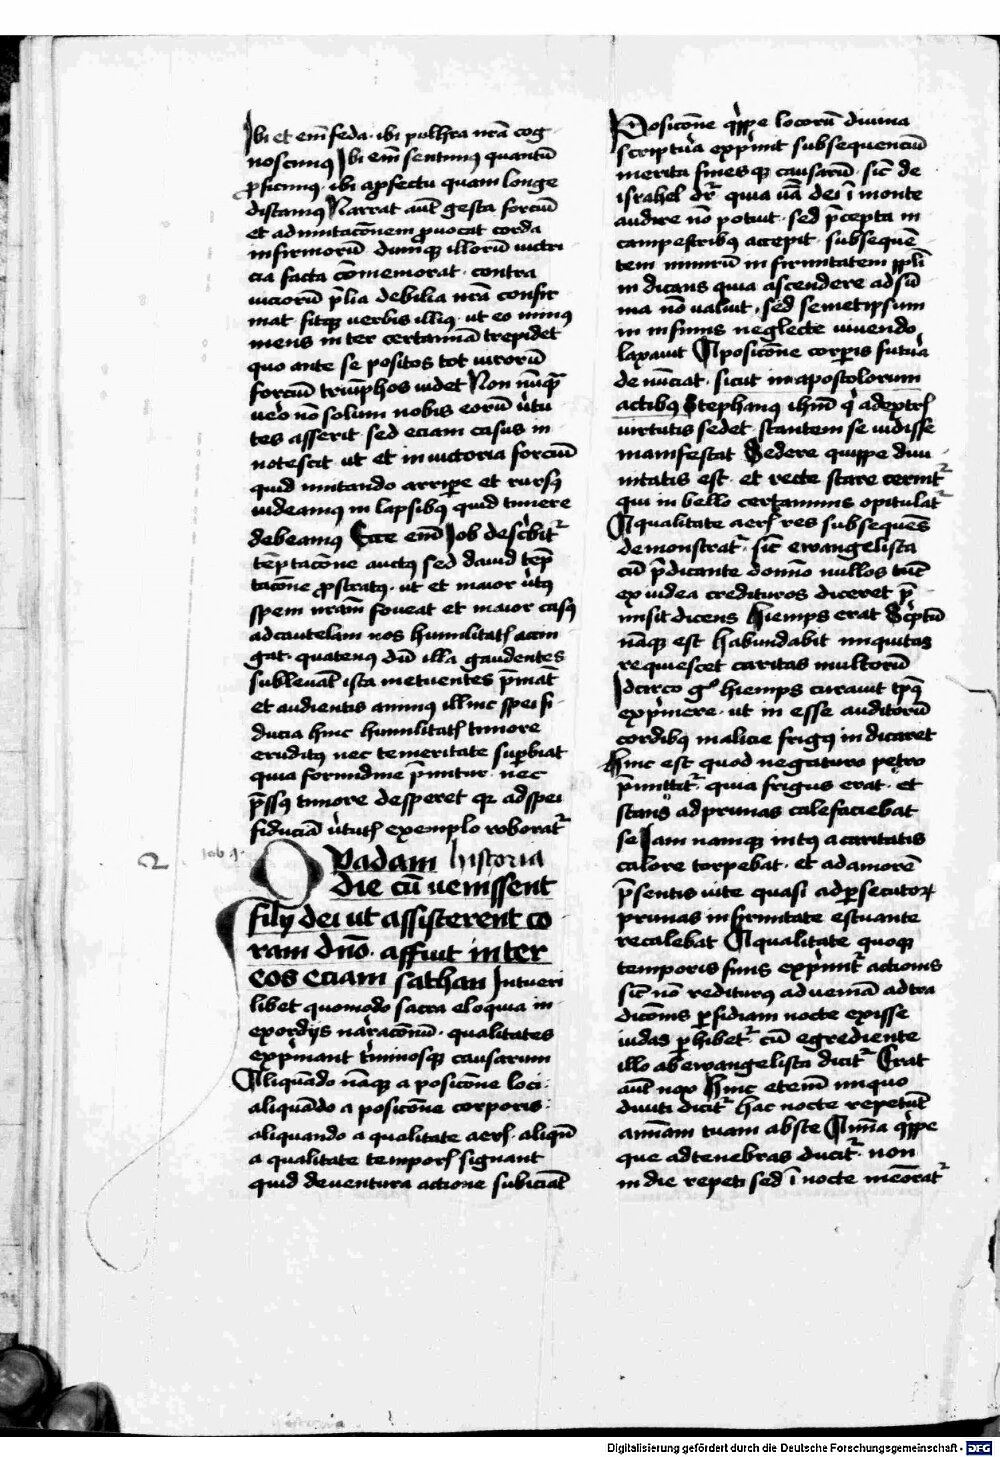 Ibi et em̄ feda · ibi pulhra nr̄a cog
noscimus Ibi em̄ sentimus quantū
ꝓficimus · ibi a ꝓfectu quam longe
distamus Narrat aūt gesta forciū
et ad mutacōnem ꝓuocat corda
infirmorū dumqꝫ illorū uictri
cia facta cōmemorat · contra
uiciorū p̄lia debilia nr̄a confir
mat fitqꝫ verbis illius · ut eo minus
mens in ter certamīa trepidet
quo ante se positos tot virorū
forciū triūphos uidet Non nūqͣ
uero nō solum nobis eorū v̓tu
tes asserit · sed eciam casus in
notescit ut et in uictoria forciū
quid imitando arripe et rursꝰ
uideamus in lapsibus quid timere
debeamus Ecce em̄ Job describit᷑
tēptacōne auctus sed dauid tēp
tacōne ꝓstratus · ut et maior v̓tus
spem nr̄am foueat et maior casꝰ
ad cautelam nos humilitatis accin
gat · quatenus dū illa gaudentes
subleuāt ista metuentes p̄māt
et audientis animus illinc spei fi
ducia hinc humilitatis timore
eruditus nec temeritate suꝑbiat
quia formidine p̄mitur · nec
p̄ssus timore desperet qꝛ ad spei
fiduciā v̓tutis exemplo roborat᷑
2 Job 1.
Quadam historia
die cū uenissent
filij dei ut assisterent co
ram dn̄o · affuit in ter
eos eciam sathan Intueri
libet quomodo sacra eloquia in
exordijs naracōnū · qualitates
exp̄mant t̓minosqꝫ causarum
Aliquādo nāqꝫ a posicōne loci ·
aliquādo a posicōne corporis ·
aliquando a qualitate aeris · aliqn̄
a qualitate temporis signant
quid de uentura actione subiciāt
Posicōne qͥppe locorū diuina
scriptura exp̄mit subsequenciū
merita finesqꝫ causarū · sic̄ de
israhel dr̄ quia v̄a dei ī monte
audire nō potuit · sed p̄cepta in
campestribus accepit · subsequē
tem nimirū in firmitatem ppl̄i
in dicans quia ascendere ad sū
ma nō ualuit , sed semetipsum
in infimis neglecte uiuendo
laxauit A posicōne corꝑis futura
de nūciat · sicut in apostolorum
actibus Stephanus ihm̄ qͥ a dextris
uirtutis sedet · stantem se uidisse
manifestat Sedere quippe diui
nitatis est · et recte stare cernit᷑
qui in bello certaminis opitulat᷑
A qualitate aeris res subsequēs
demonstrat᷑ · sic̄ ewangelista
cū p̄dicante domīo nullos tūc
ex iudea credituros diceret p̄
misit dicens Hiemps erat Sc̓ptū
nāqꝫ est Habundabit iniquitas
requiescet caritas multorū
Idcirco gͦ hiemps curauit tp̄s
exp̄mere · ut in esse auditorū
cordibus malicie frigus in dicaret
Hinc est quod negaturo petro
p̄mittit᷑ · quia frigus erat · et
stans ad prunas calefaciebat
se Iam namqꝫ intus a caritatis
calore torpebat · et ad amorē
p̄sentis uite quasi ad ꝑsecutoꝝ
prunas infirmitate estuante
recalebat A qualitate quoqꝫ
temporis finis exp̄mit᷑ actionis
sic̄ nō rediturus ad ueniā ad tra
dicōnis ꝑfidiam nocte exisse
iudas ꝑhibet᷑ · cū egrediente
illo ab ewangelista dicit᷑ Erat
aūt nox Hinc etenī iniquo
diuiti dicit᷑ hac nocte repetūt
animam tuam abs te Anīa qͥppe
que ad tenebras ducit᷑ · non
in die repeti sed ī nocte memorat᷑
Digitalisierung gefördert durch die Deutsche Forschungsgemeinschaft - DFG